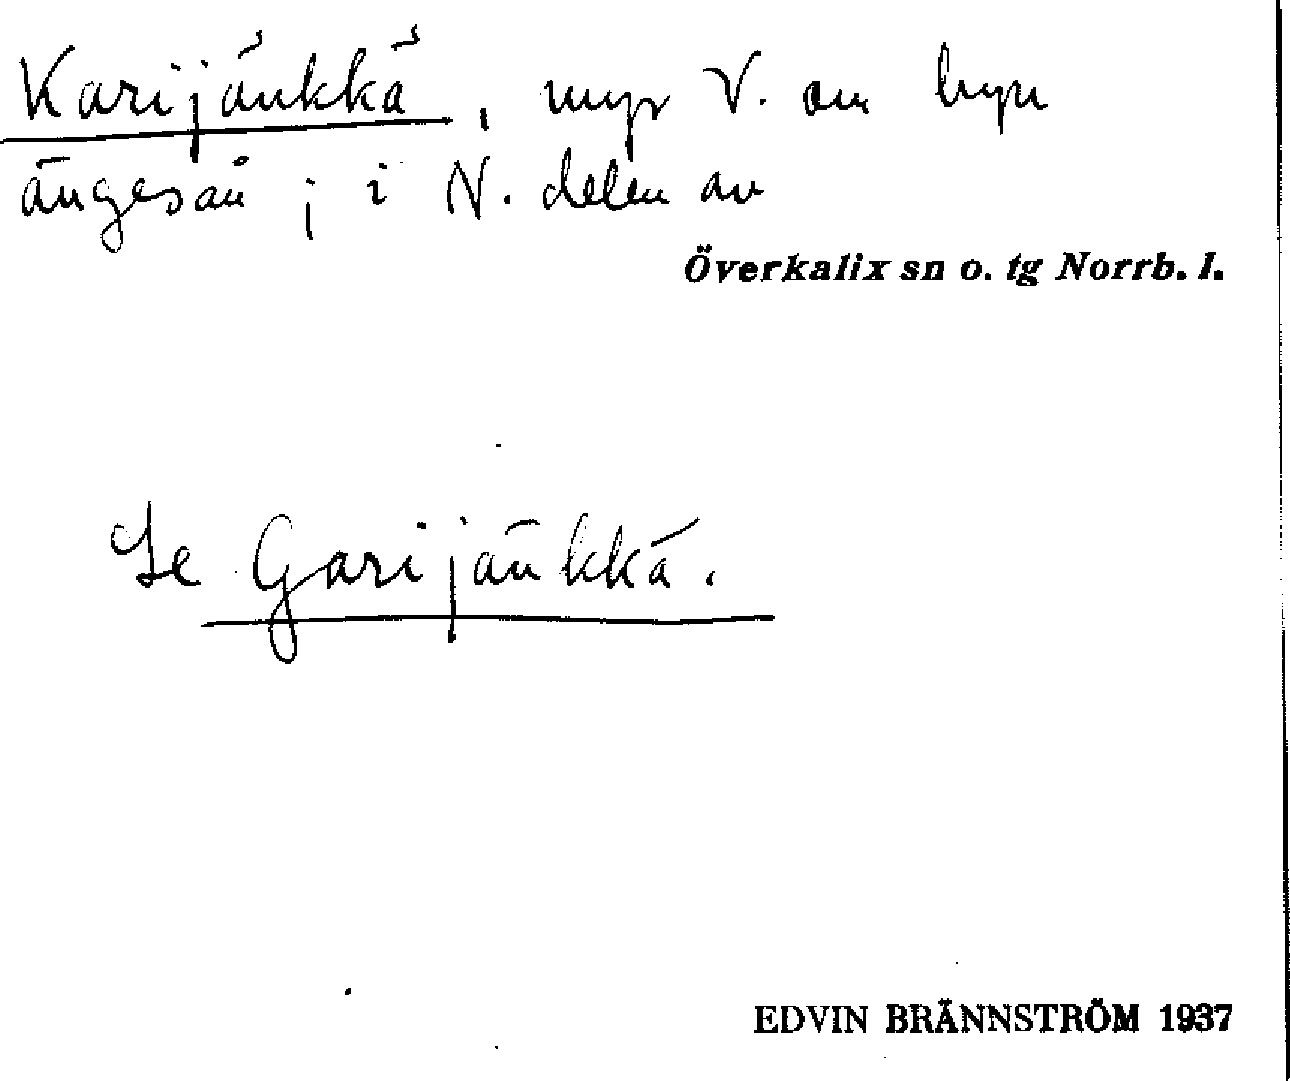 Karijänkkä, myr V. om byn
ängesån; i N. delen av
Överkalix sn o. tg Norrb. l.
Se Garijänkkä.
EDVIN BRÄNNSTRÖM 1937